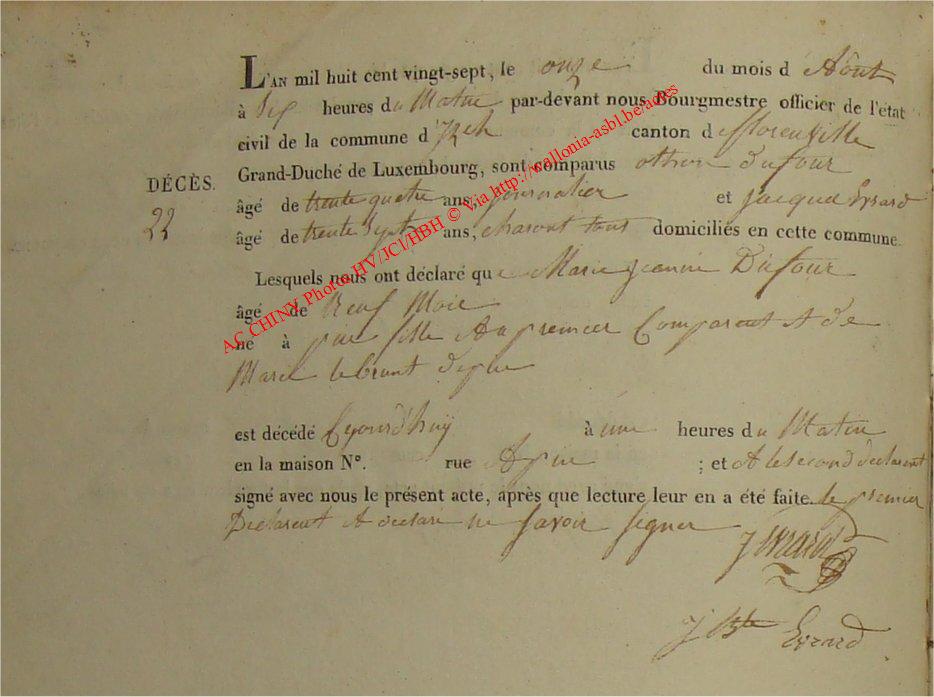 L'AN mil huit cent vingt-sept, le onze du mois d Aôut
à heures du Matin par-devant nous Bourgmestre officier de l'état
civil de la commune d'Izel canton de florenville
DÉCÈS.
22
Grand-Duché de Luxembourg, sont comparus othon dufour
âgé de trente quatre ans, journalier et jacque Evrard
âgé de trente sept ans, charont tous domiciliés en cette commune.
Lesquels nous ont déclaré que Marie jeanne Dufour
âgé de Neuf Mois
né à fille du premier Comparent & de
Marie
est décédé cejourd'huy à une heures du Matin
en la maison N°. rue ; et & le second declarent
signé avec nous le présent acte, après que lecture leur en a été faite. le premier
Declarent A déclaré ne savoir signer
J Evrard
J Bte Evrard
AC CHINY Photos HV/JCl/HBH © Via http://wallonia-asbl.be/actes